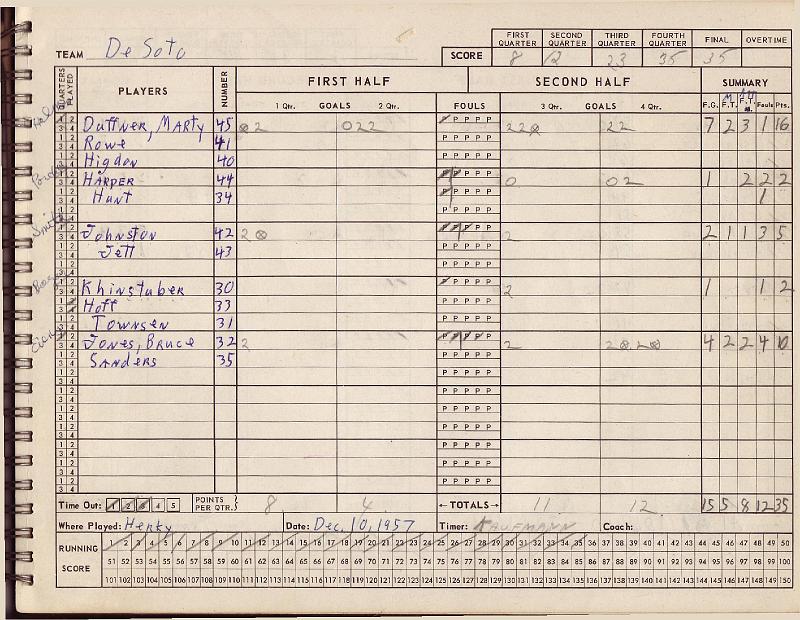 FIRST QUARTER SECOND QUARTER THIRD QUARTER FOURTH QUARTER FINAL OVERTIME
TEAM De Soto SCORE 8 12 23 35 35
QUARTERS PLAYED PLAYERS NUMBER FIRST HALF SECOND HALF SUMMARY
1 Qtr. GOALS 2 Qtr. FOULS 3 Qtr. GOALS 4 Qtr. F.G. F.T. F.T. Fouls Pts.
Duffner, Marty 45 2 022 P P P P P 22 22 7 2 3 1 16
Rowe 41 P P P P P
Higdon 40 P P P P P
Harper 44 P P P P P 0 02 1 2 2 2
Hunt 34 P P P P P 1
P P P P P
Johnston 42 2 P P P P P 2 2 1 1 3 5
Jett 43 P P P P P
P P P P P
Khinstuber 30 P P P P P 2 1 1 2
Hoff 33 P P P P P
Townsen 31 P P P P P
Jones, Bruce 32 2 P P P P P 2 4 2 2 4 10
Sanders 35 P P P P P
P P P P P
P P P P P
P P P P P
P P P P P
P P P P P
P P P P P
P P P P P
Time Out: 1 2 3 4 5 POINTS PER QTR. 8 4 ←TOTALS→ 11 12 15 5 8 12 35
Where Played: Herky Date: Dec. 10, 1957 Timer: Kaufmann Coach:
RUNNING SCORE
1 2 3 4 5 6 7 8 9 10 11 12 13 14 15 16 17 18 19 20 21 22 23 24 25 26 27 28 29 30 31 32 33 34 35 36 37 38 39 40 41 42 43 44 45 46 47 48 49 50
51 52 53 54 55 56 57 58 59 60 61 62 63 64 65 66 67 68 69 70 71 72 73 74 75 76 77 78 79 80 81 82 83 84 85 86 87 88 89 90 91 92 93 94 95 96 97 98 99 100
101 102 103 104 105 106 107 108 109 110 111 112 113 114 115 116 117 118 119 120 121 122 123 124 125 126 127 128 129 130 131 132 133 134 135 136 137 138 139 140 141 142 143 144 145 146 147 148 149 150